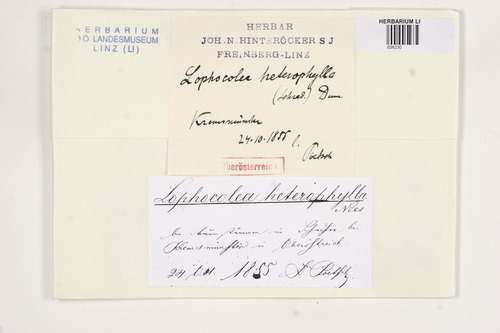 HERBARIUM
OÖ LANDESMUSEUM
LINZ (LI)
HERBAR
JOH. N. HINTERÖCKER S J
FREINBERG-LINZ
HERBARIUM LI
Lophocolea heterophylla
(Schrad.) Dum
Kremsmünster
24.10.1855 l.
Poetsch
Oberösterreich
Lophocolea heterophylla
Nees
in
Kremsmünster in Oberöstreich
24/10. 1855 Dr Poetsch